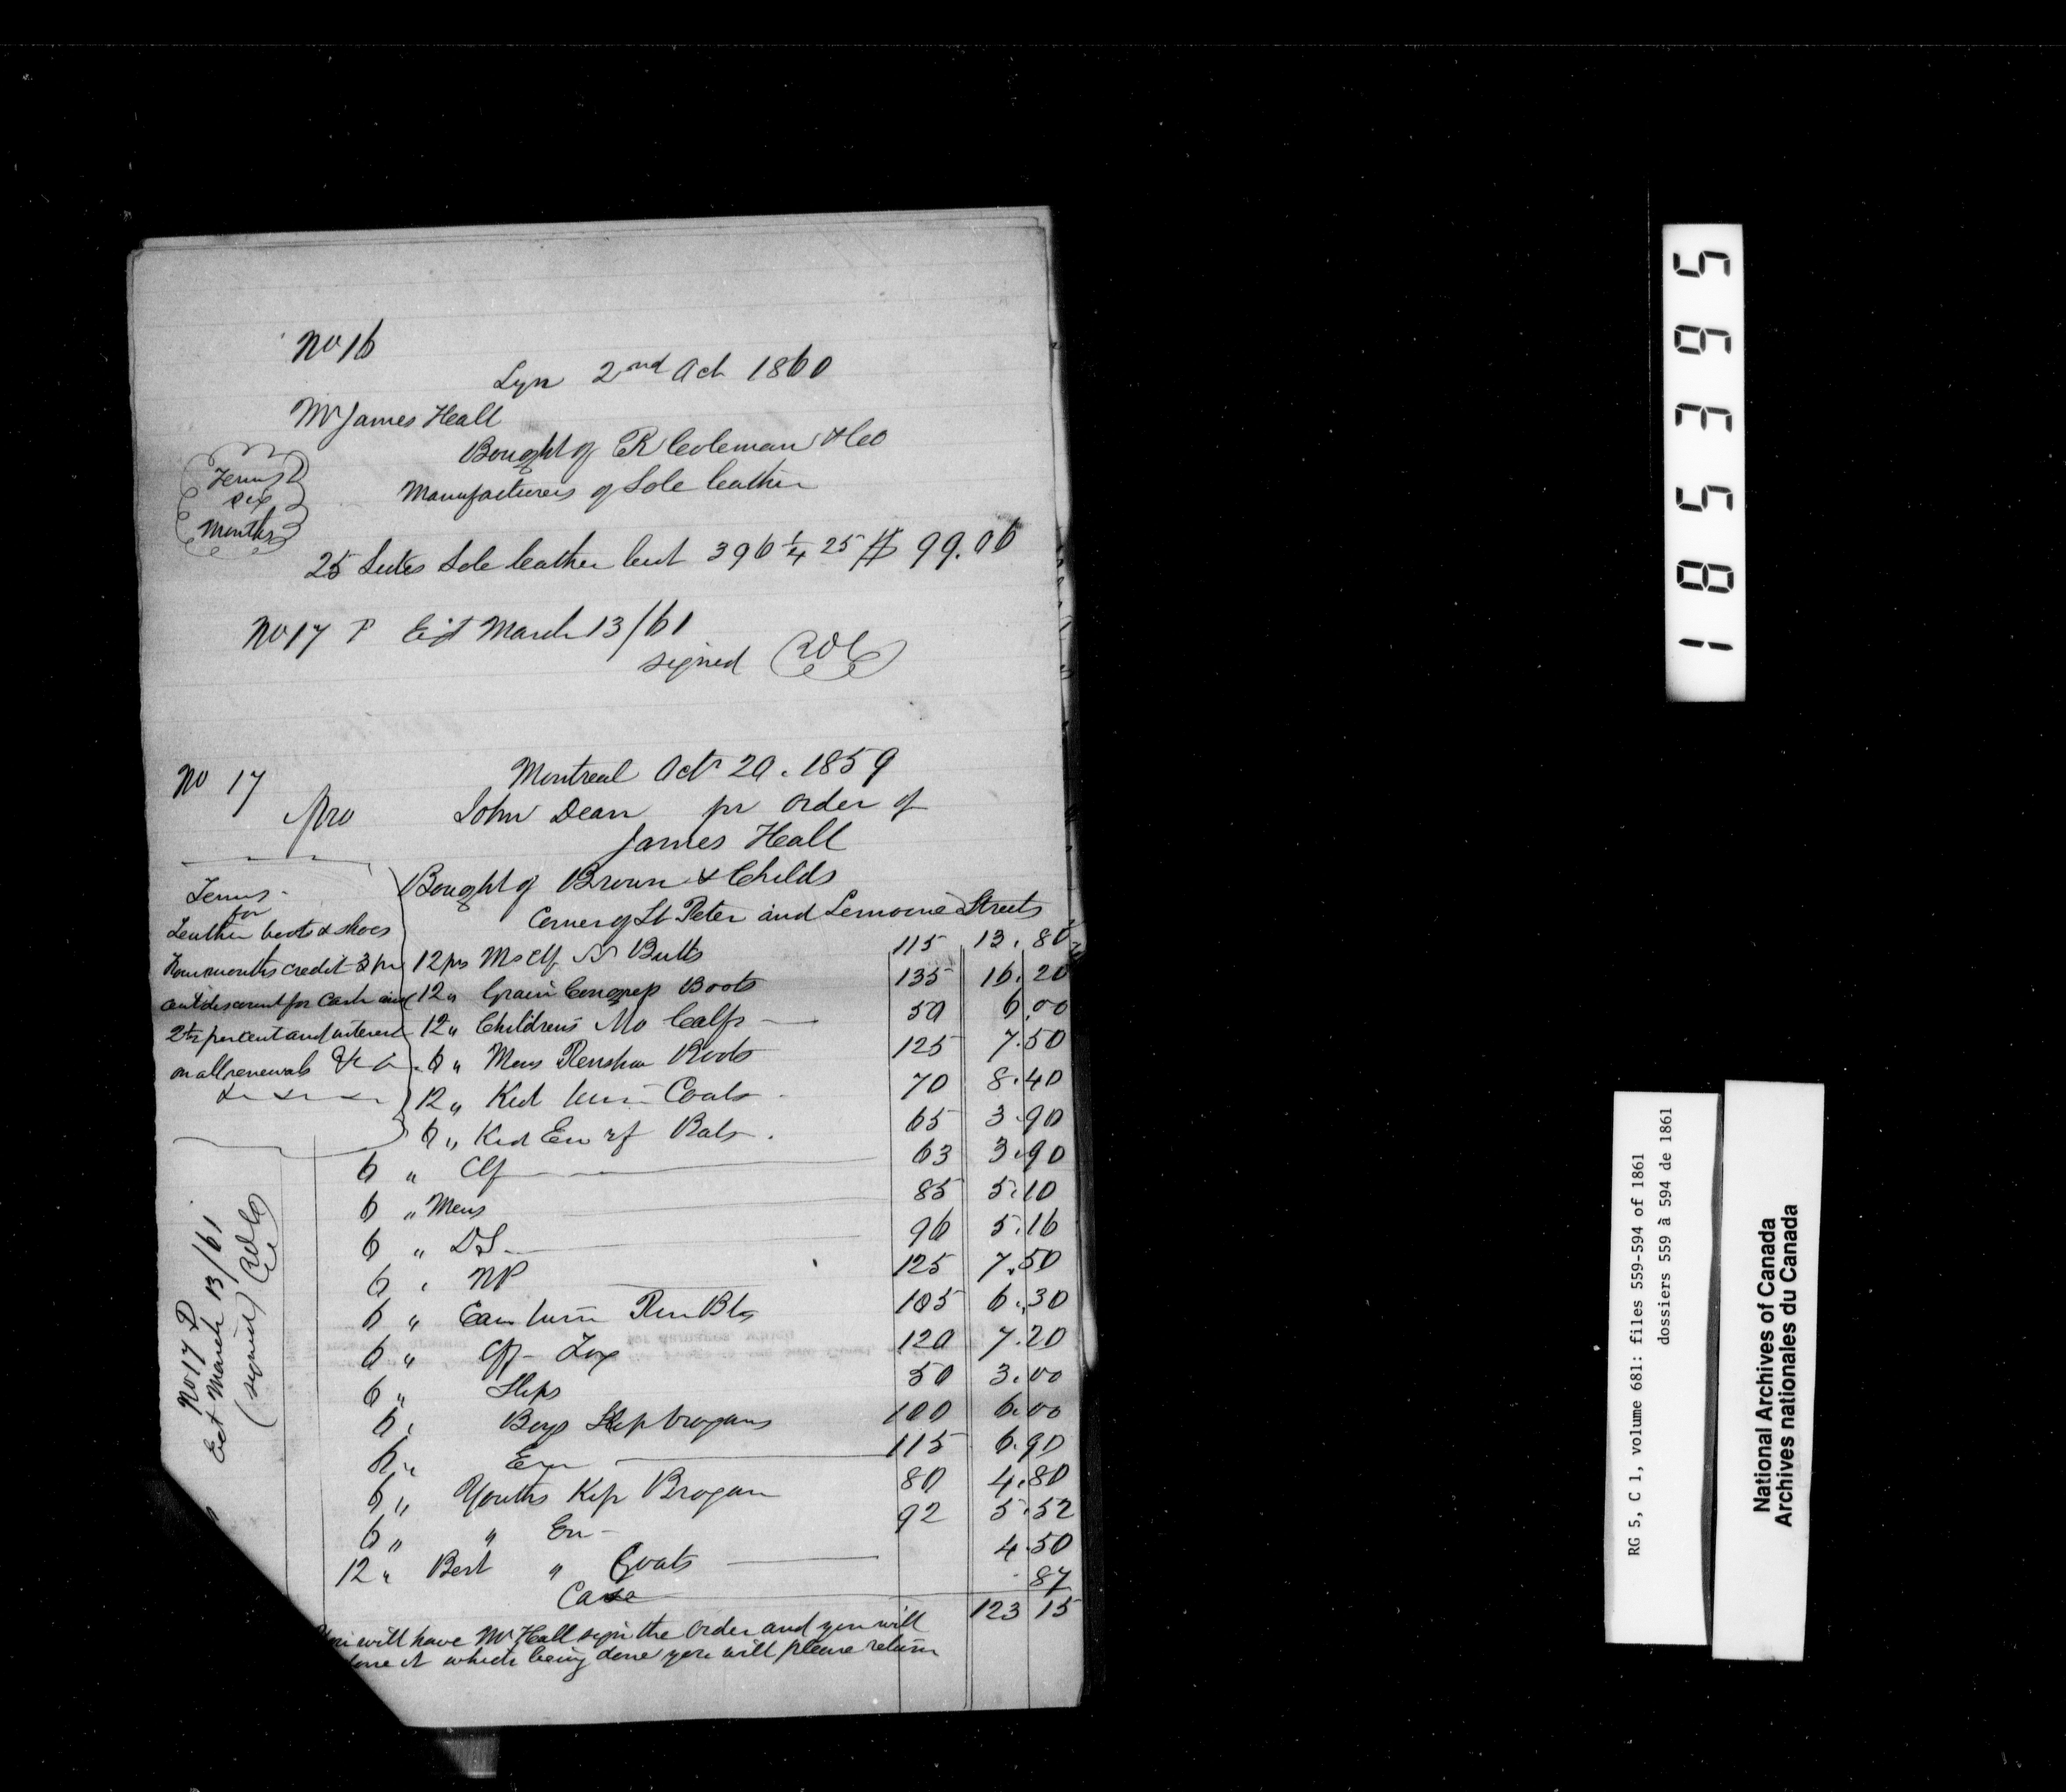 No 16
Lyn 2nd Oct 1860
Mr James Heall
Bought of R Coleman & Co
Manufacturers of Sole leather
Terms
six
Months
25 Sides Sole leather 396 1/4 25 $ 99.06
No 17 P Ext March 13/61
signed
No 17
Montreal Oct 20. 1859
Mro John Dean pr order of
James Heall
Bought of Brown & Childs
Corner of St Peter and Lemoine Streets
Terms
for
Leather boots & shoes
Four months credit 3 pr
cent discount for Cash and
2½ percent and interest
on all renewals
12 prs Ms Clf Butts 115 13.80
12 " Grain Congress Boots 135 16.20
12 " Childrens Mo Calfs 50 6.00
6 " Mens Boots 125 7.50
12 " Kid 70 8.40
6 " Kid En rf Bals. 65 3.90
6 " Clf 63 3.90
6 " Mens 85 5.10
6 " DS 96 5.16
6 " NP 125 7.50
6 " 105 6.30
6 " Fox 120 7.20
6 " Slips 50 3.00
6 " Boys brogans 100 6.00
6 " 115 6.90
6 " Youths Kip Brogan 80 4.80
6 " " En 92 5.52
12 " Best " Goats 4.50
Case .87
123 15
No 17 P
Ext March 13/61
(signed)
You will have Mr Heall sign the order and you will
it which being done you will please return
1 8 5 3 6 5
RG 5, C 1, volume 681: files 559-594 of 1861
dossiers 559 à 594 de 1861
National Archives of Canada
Archives nationales du Canada